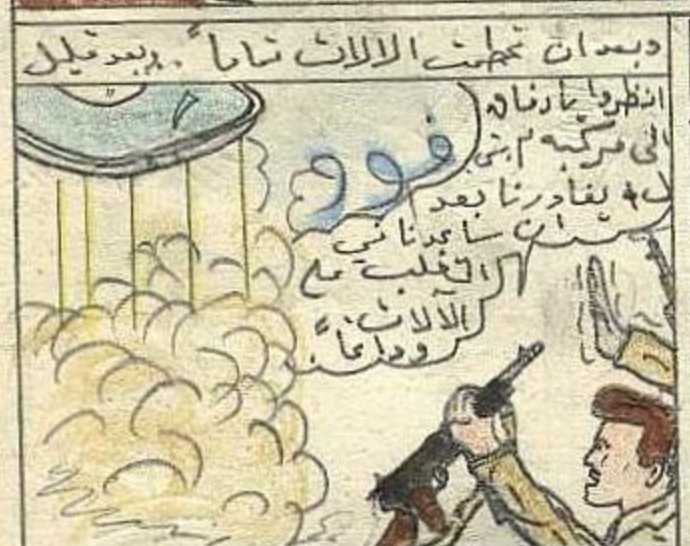 وبعد ان تحطمت الالات تماماً .. وبعد قليل
انظروا يا رفاق
الى مركبة
يغادرنا بعد
ان ساعدنا في
التغلب على
الآلات
وداعاً
فوو